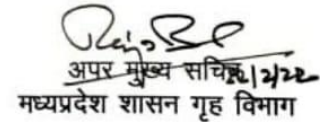 अपर मुख्य सचिव 22/2/22
मध्यप्रदेश शासन गृह विभाग